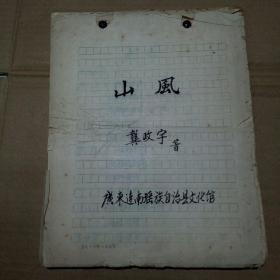 山風
龔政宇 著
廣東連南瑤族自治县文化馆